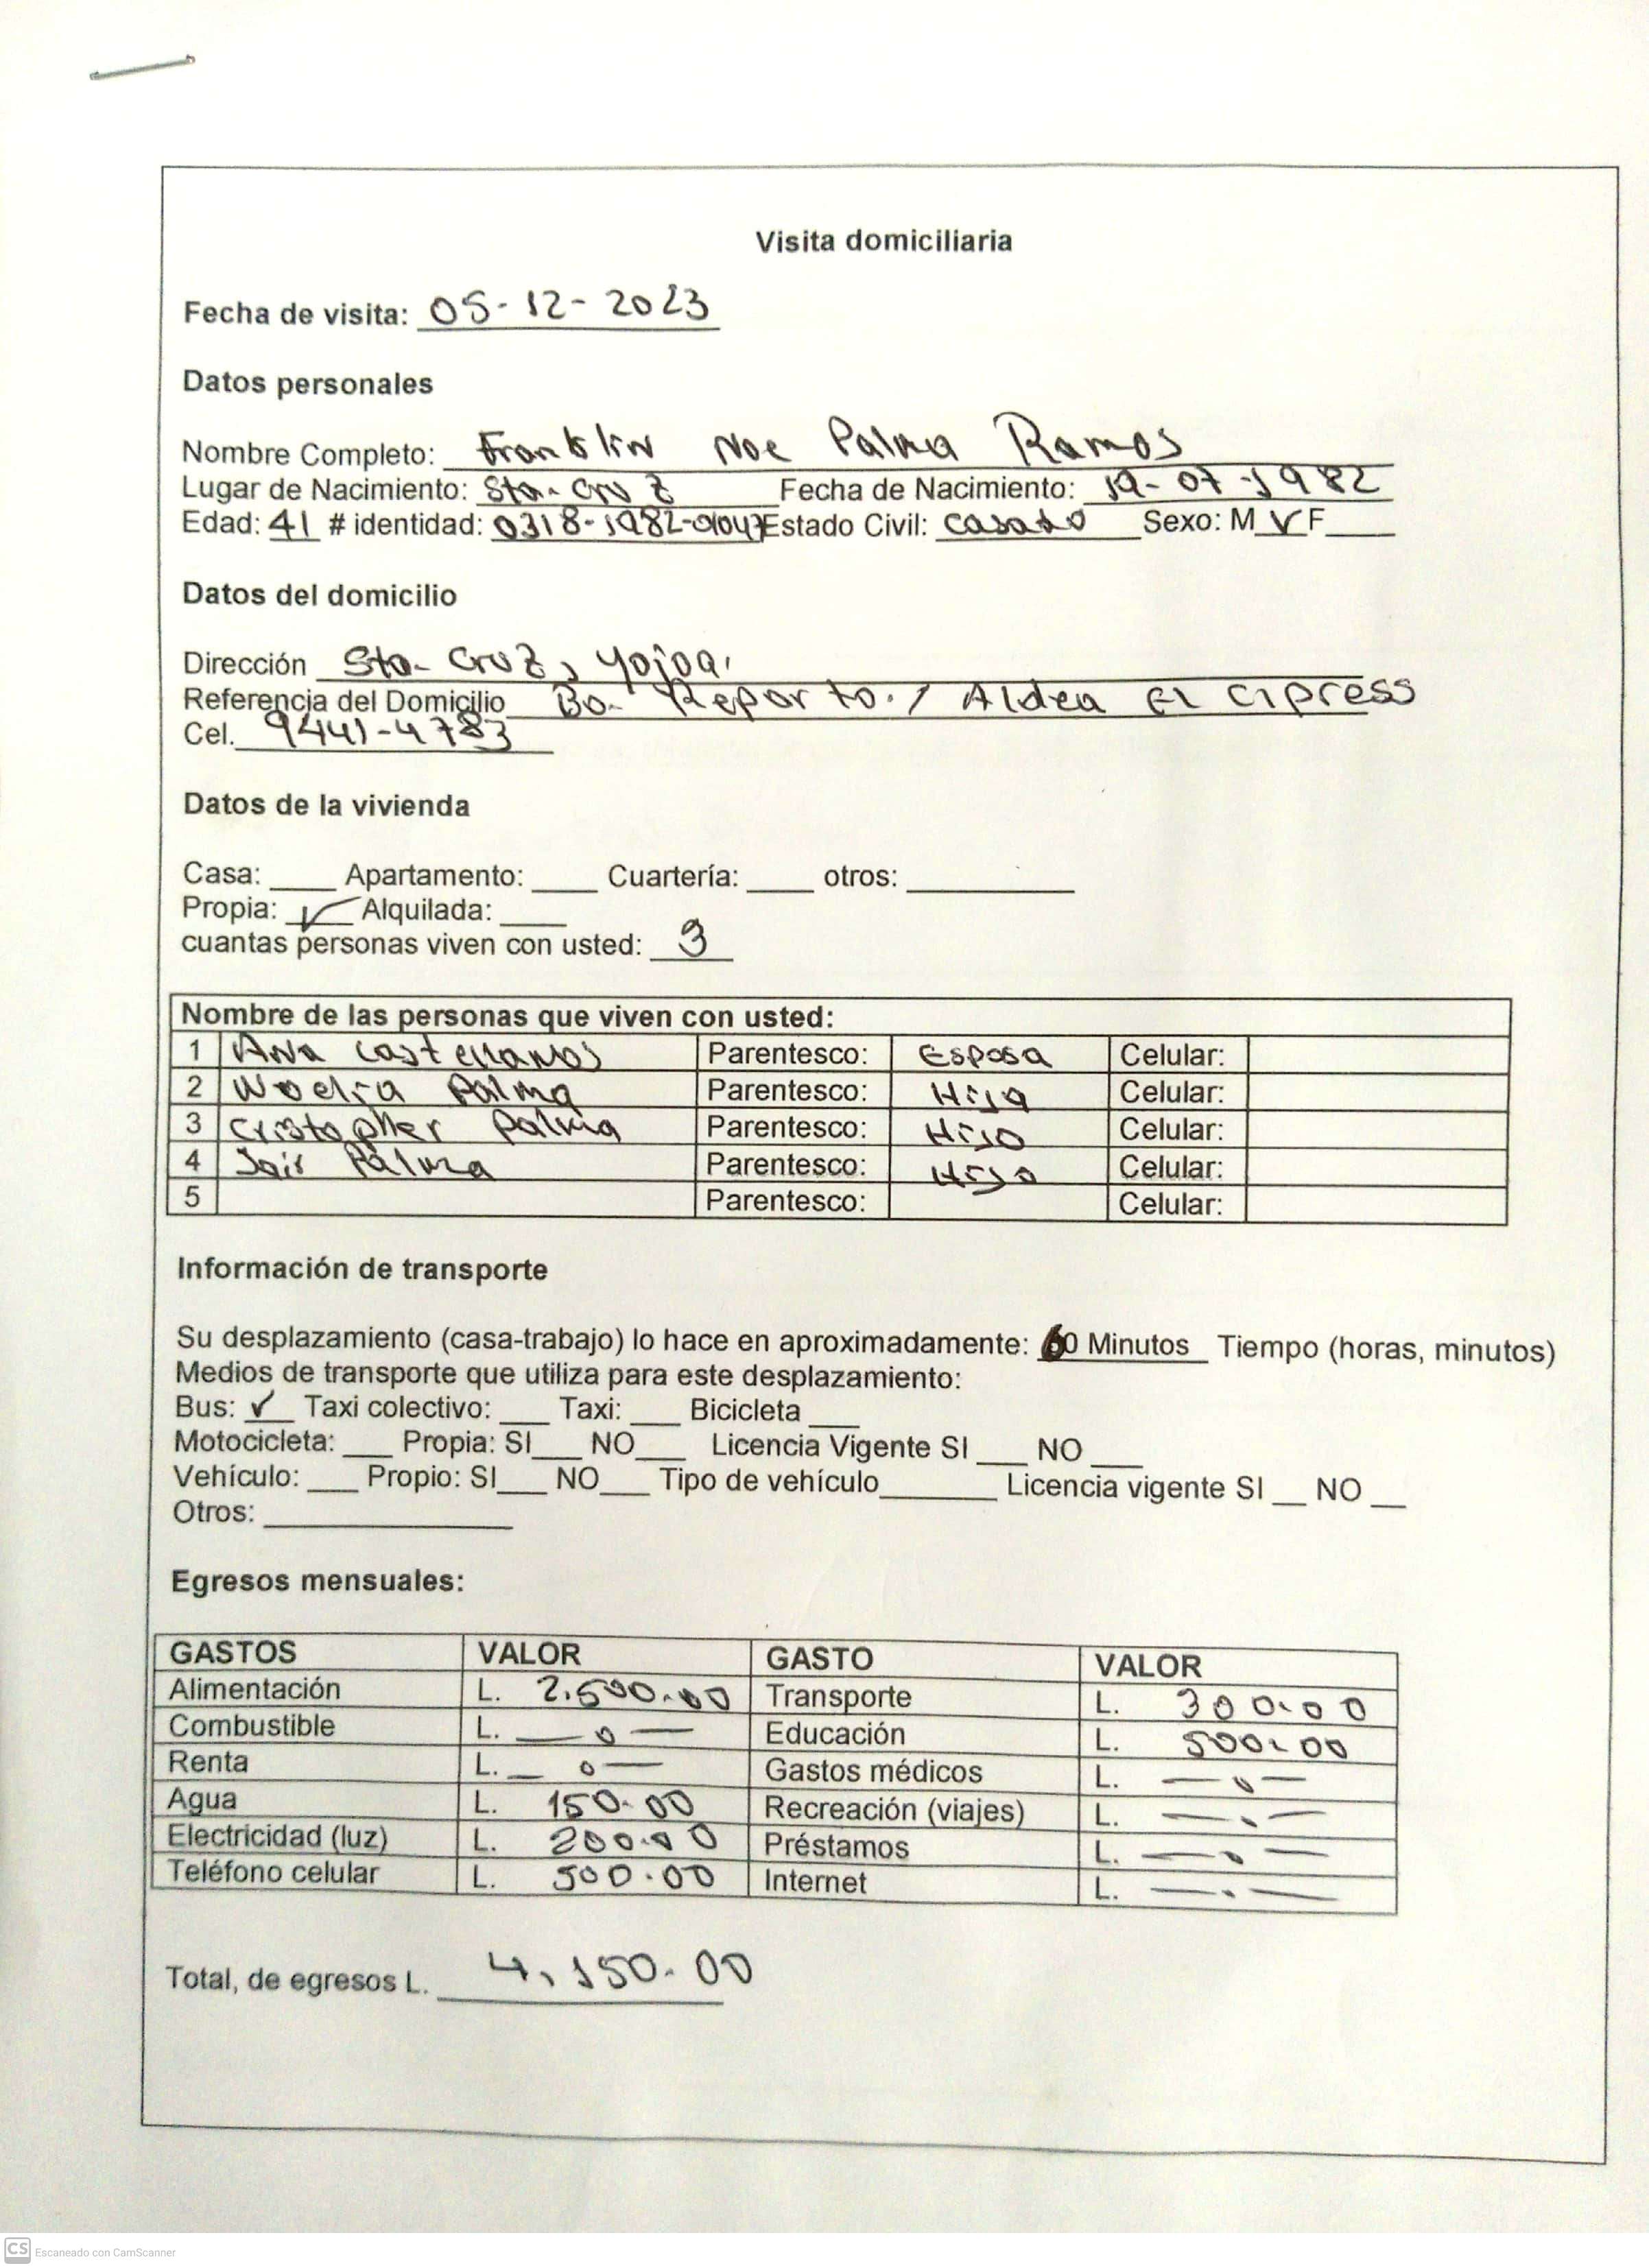 Visita domiciliaria
Fecha de visita: 05-12-2023
Datos personales
Nombre Completo: Franklin Noe Palma Ramos
Lugar de Nacimiento: Sta. Cruz Fecha de Nacimiento: 19-07-1982
Edad: 41 # identidad: 0318-1982- Estado Civil: casado Sexo: M ✓ F____
Datos del domicilio
Dirección Sta. Cruz, Yojoa.
Referencia del Domicilio Bo. Reparto. / Aldea El Cipress
Cel. 9441-4783
Datos de la vivienda
Casa: ____ Apartamento: ____ Cuartería: ____ otros: ____
Propia: ✓ Alquilada: ____
cuantas personas viven con usted: 3
Nombre de las personas que viven con usted:
1 Ana Castellanos Parentesco: Esposa Celular:
2 Noelia Palma Parentesco: Hija Celular:
3 Cristopher Palma Parentesco: Hijo Celular:
4 Jair Palma Parentesco: Hijo Celular:
5 Parentesco: Celular:
Información de transporte
Su desplazamiento (casa-trabajo) lo hace en aproximadamente: 60 Minutos Tiempo (horas, minutos)
Medios de transporte que utiliza para este desplazamiento:
Bus: ✓ Taxi colectivo: ___ Taxi: ___ Bicicleta ___
Motocicleta: ___ Propia: SI___ NO___ Licencia Vigente SI ___ NO ___
Vehículo: ___ Propio: SI___ NO___ Tipo de vehículo_______ Licencia vigente SI __ NO __
Otros: _______________
Egresos mensuales:
GASTOS VALOR GASTO VALOR
Alimentación L. 2,500.00 Transporte L. 300.00
Combustible L. — 0 — Educación L. 500.00
Renta L. — 0 — Gastos médicos L. — 0 —
Agua L. 150.00 Recreación (viajes) L. — . —
Electricidad (luz) L. 200.00 Préstamos L. — . —
Teléfono celular L. 500.00 Internet L. — . —
Total, de egresos L. 4,150.00
CS Escaneado con CamScanner